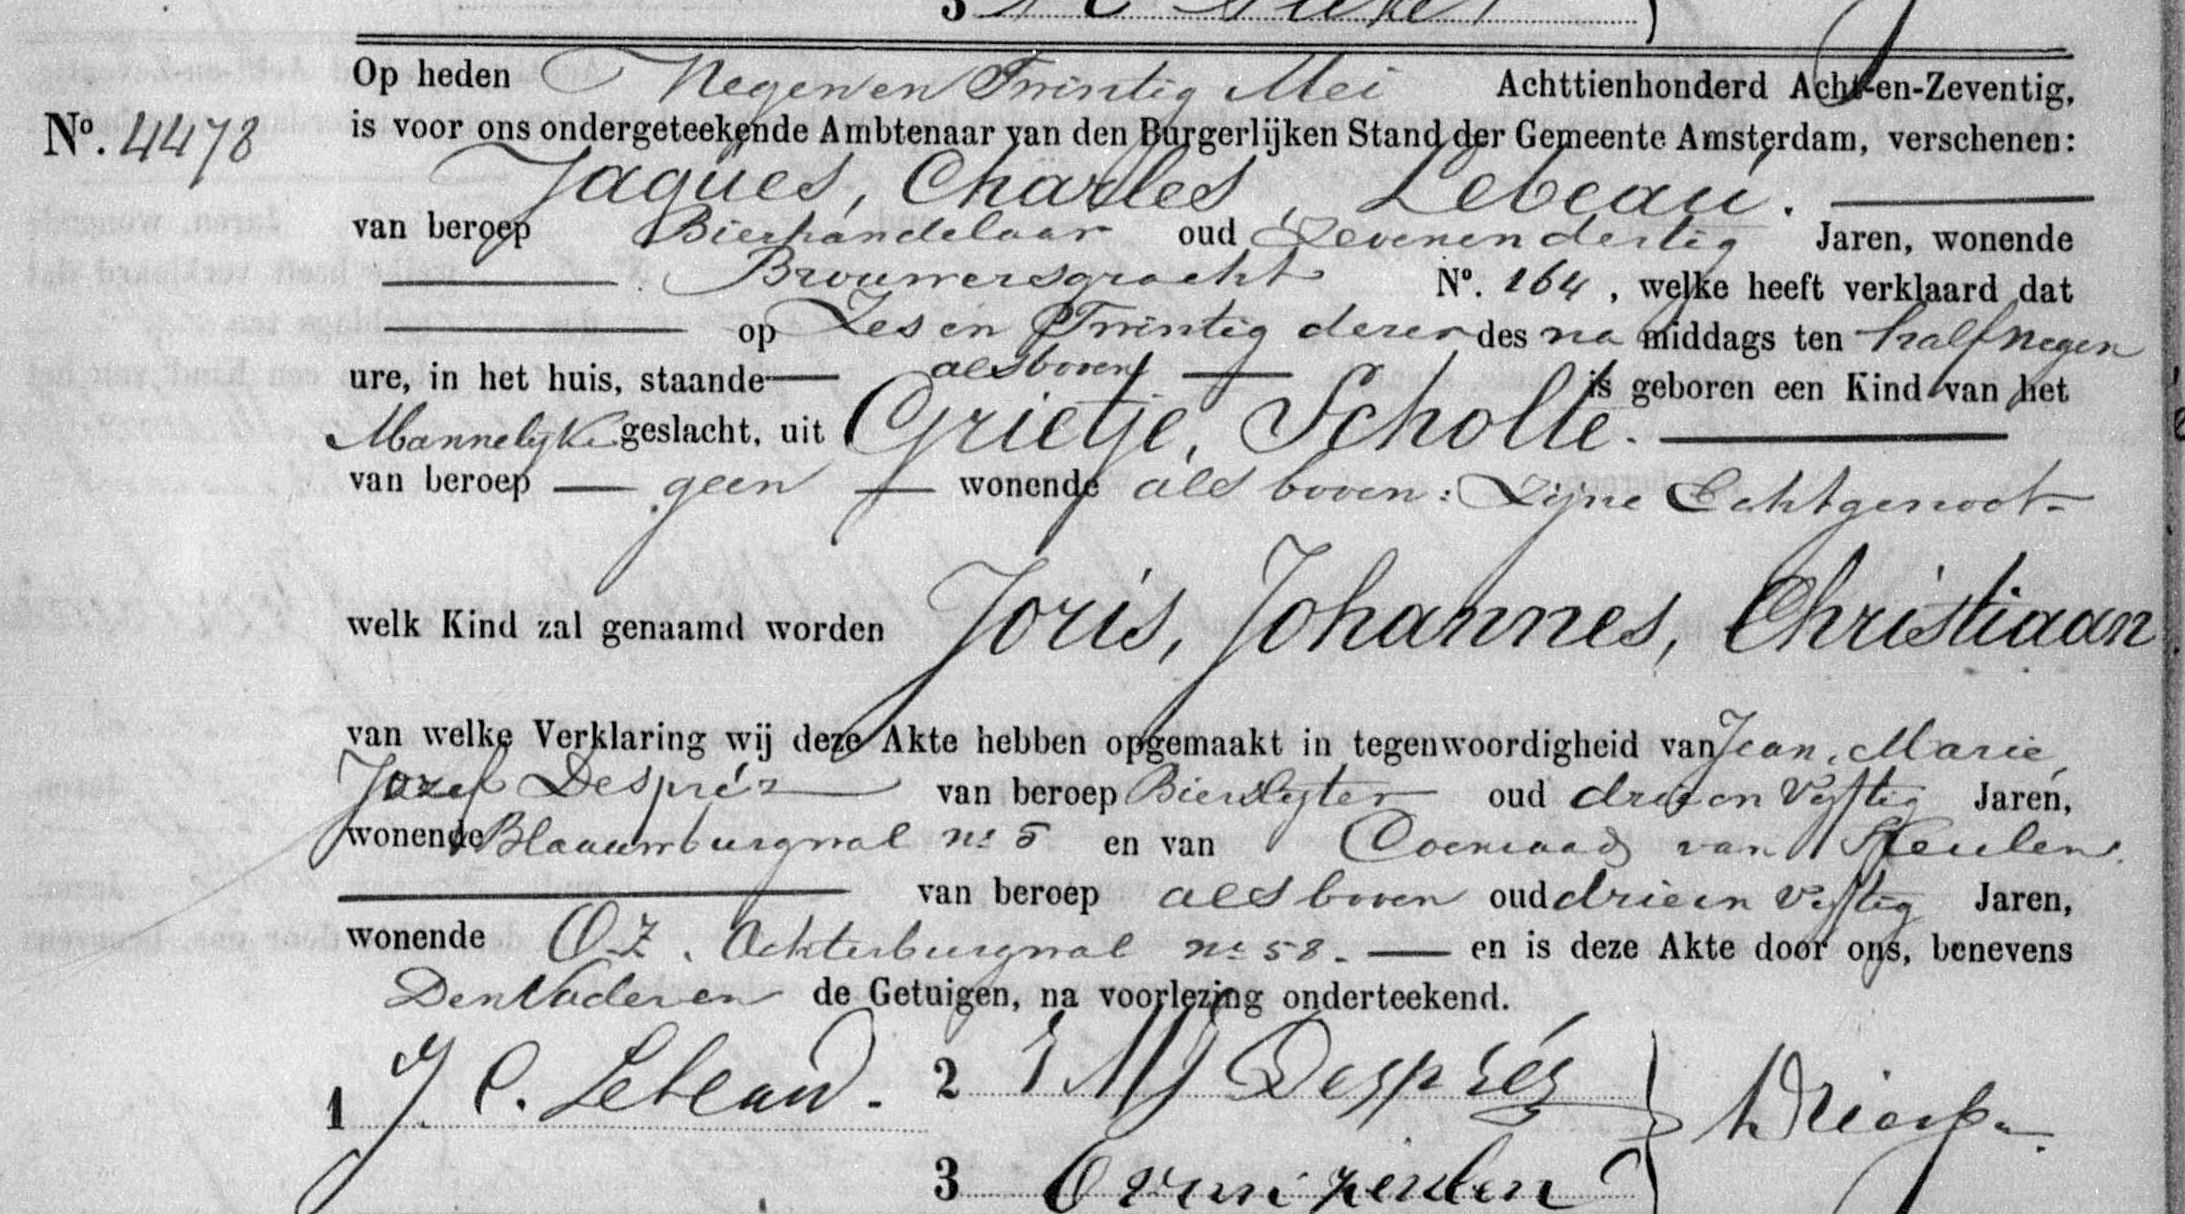 3
Op heden Negen en Twintig Mei Achttienhonderd Acht-en-Zeventig,
No. 4478
is voor ons ondergeteekende Ambtenaar van den Burgerlijken Stand der Gemeente Amsterdam, verschenen:
Jaques, Charles, Lebeau.
van beroep Bierhandelaar oud Zevenendertig Jaren, wonende
Brouwersgracht No. 164, welke heeft verklaard dat
op Zes en Twintig dezer des na middags ten half negen
ure, in het huis, staande als boven is geboren een Kind van het
Mannelijke geslacht, uit Grietje, Scholte.
van beroep geen wonende als boven: Zijne Echtgenoot
welk Kind zal genaamd worden Joris, Johannes, Christiaan
van welke Verklaring wij deze Akte hebben opgemaakt in tegenwoordigheid van Jean, Marie,
Jozef Despréz van beroep oud drie en Vijftig Jaren,
wonende Blaauwburgwal no 5 en van Coenraad van Keulen.
van beroep als boven oud drie en Vijftig Jaren,
wonende O.Z. Achterburgwal no 58. en is deze Akte door ons, benevens
Den Vader en de Getuigen, na voorlezing onderteekend.
1 J. C. Lebeau. 2 J M J Després
3